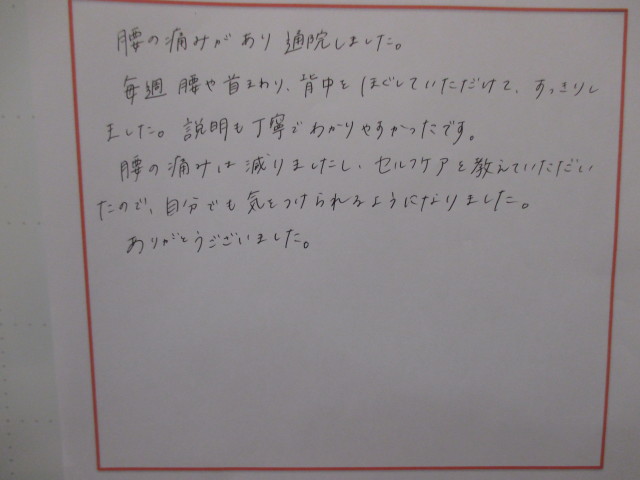 腰の痛みがあり通院しました。
毎週腰や首まわり、背中をほぐしていただけて、すっきりし
ました。説明も丁寧でわかりやすかったです。
腰の痛みは減りましたし、セルフケアを教えていただい
たので、自分でも気をつけられるようになりました。
ありがとうございました。